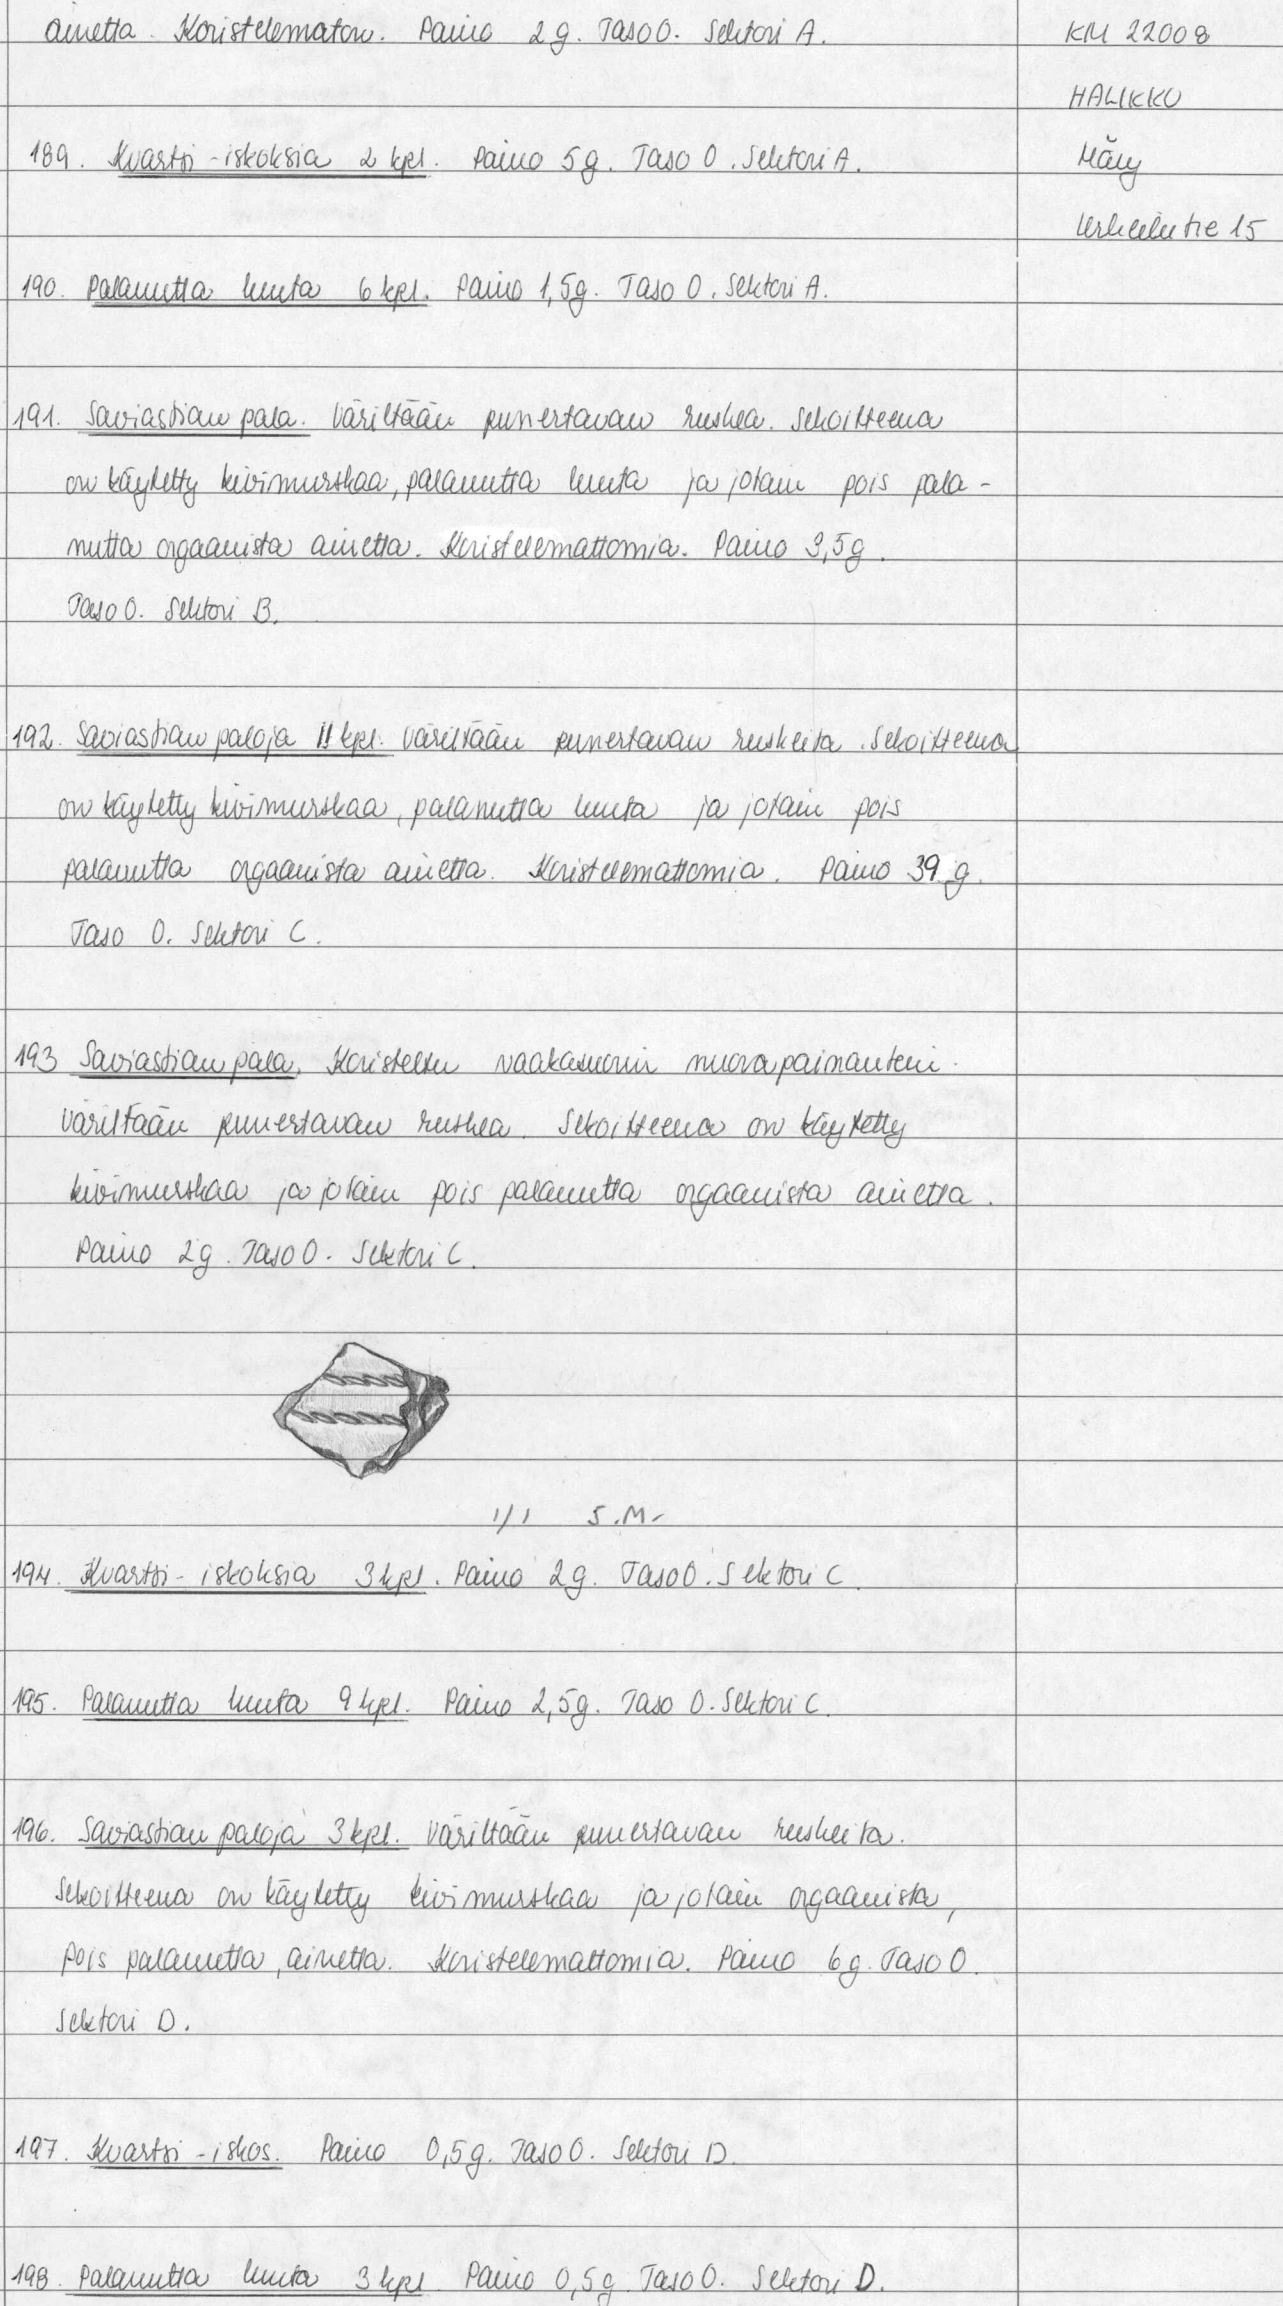 ainetta. Koristelematon. Paino 2 g. Taso 0. Sektori A.
KM 22008
HALIKKO
189. Kvartsi-iskoksia 2 kpl. Paino 5 g. Taso 0. Sektori A.
Märy
Urheilutie 15
190. Palanutta luuta 6 kpl. Paino 1,5 g. Taso 0. Sektori A.
191. Saviastian pala. Väriltään punertavan ruskea. Sekoitteena
on käytetty kivimurskaa, palanutta luuta ja jotain pois pala-
nutta orgaanista ainetta. Koristelemattomia. Paino 3,5 g.
Taso 0. Sektori B.
192. Saviastian paloja 11 kpl. Väriltään punertavan ruskeita. Sekoitteena
on käytetty kivimurskaa, palanutta luuta ja jotain pois
palanutta orgaanista ainetta. Koristelemattomia. Paino 39 g.
Taso 0. Sektori C.
193 Saviastian pala. Koristeltu vaakasuorin nuorapainantein.
Väriltään punertavan ruskea. Sekoitteena on käytetty
kivimurskaa ja jotain pois palanutta orgaanista ainetta.
Paino 2 g. Taso 0. Sektori C.
1/1 S.M.
194. Kvartsi-iskoksia 3 kpl. Paino 2 g. Taso 0. Sektori C.
195. Palanutta luuta 9 kpl. Paino 2,5 g. Taso 0. Sektori C.
196. Saviastian paloja 3 kpl. Väriltään punertavan ruskeita.
Sekoitteena on käytetty kivimurskaa ja jotain orgaanista,
pois palanutta, ainetta. Koristelemattomia. Paino 6 g. Taso 0.
Sektori D.
197. Kvartsi-iskos. Paino 0,5 g. Taso 0. Sektori D.
198. Palanutta luuta 3 kpl. Paino 0,5 g. Taso 0. Sektori D.